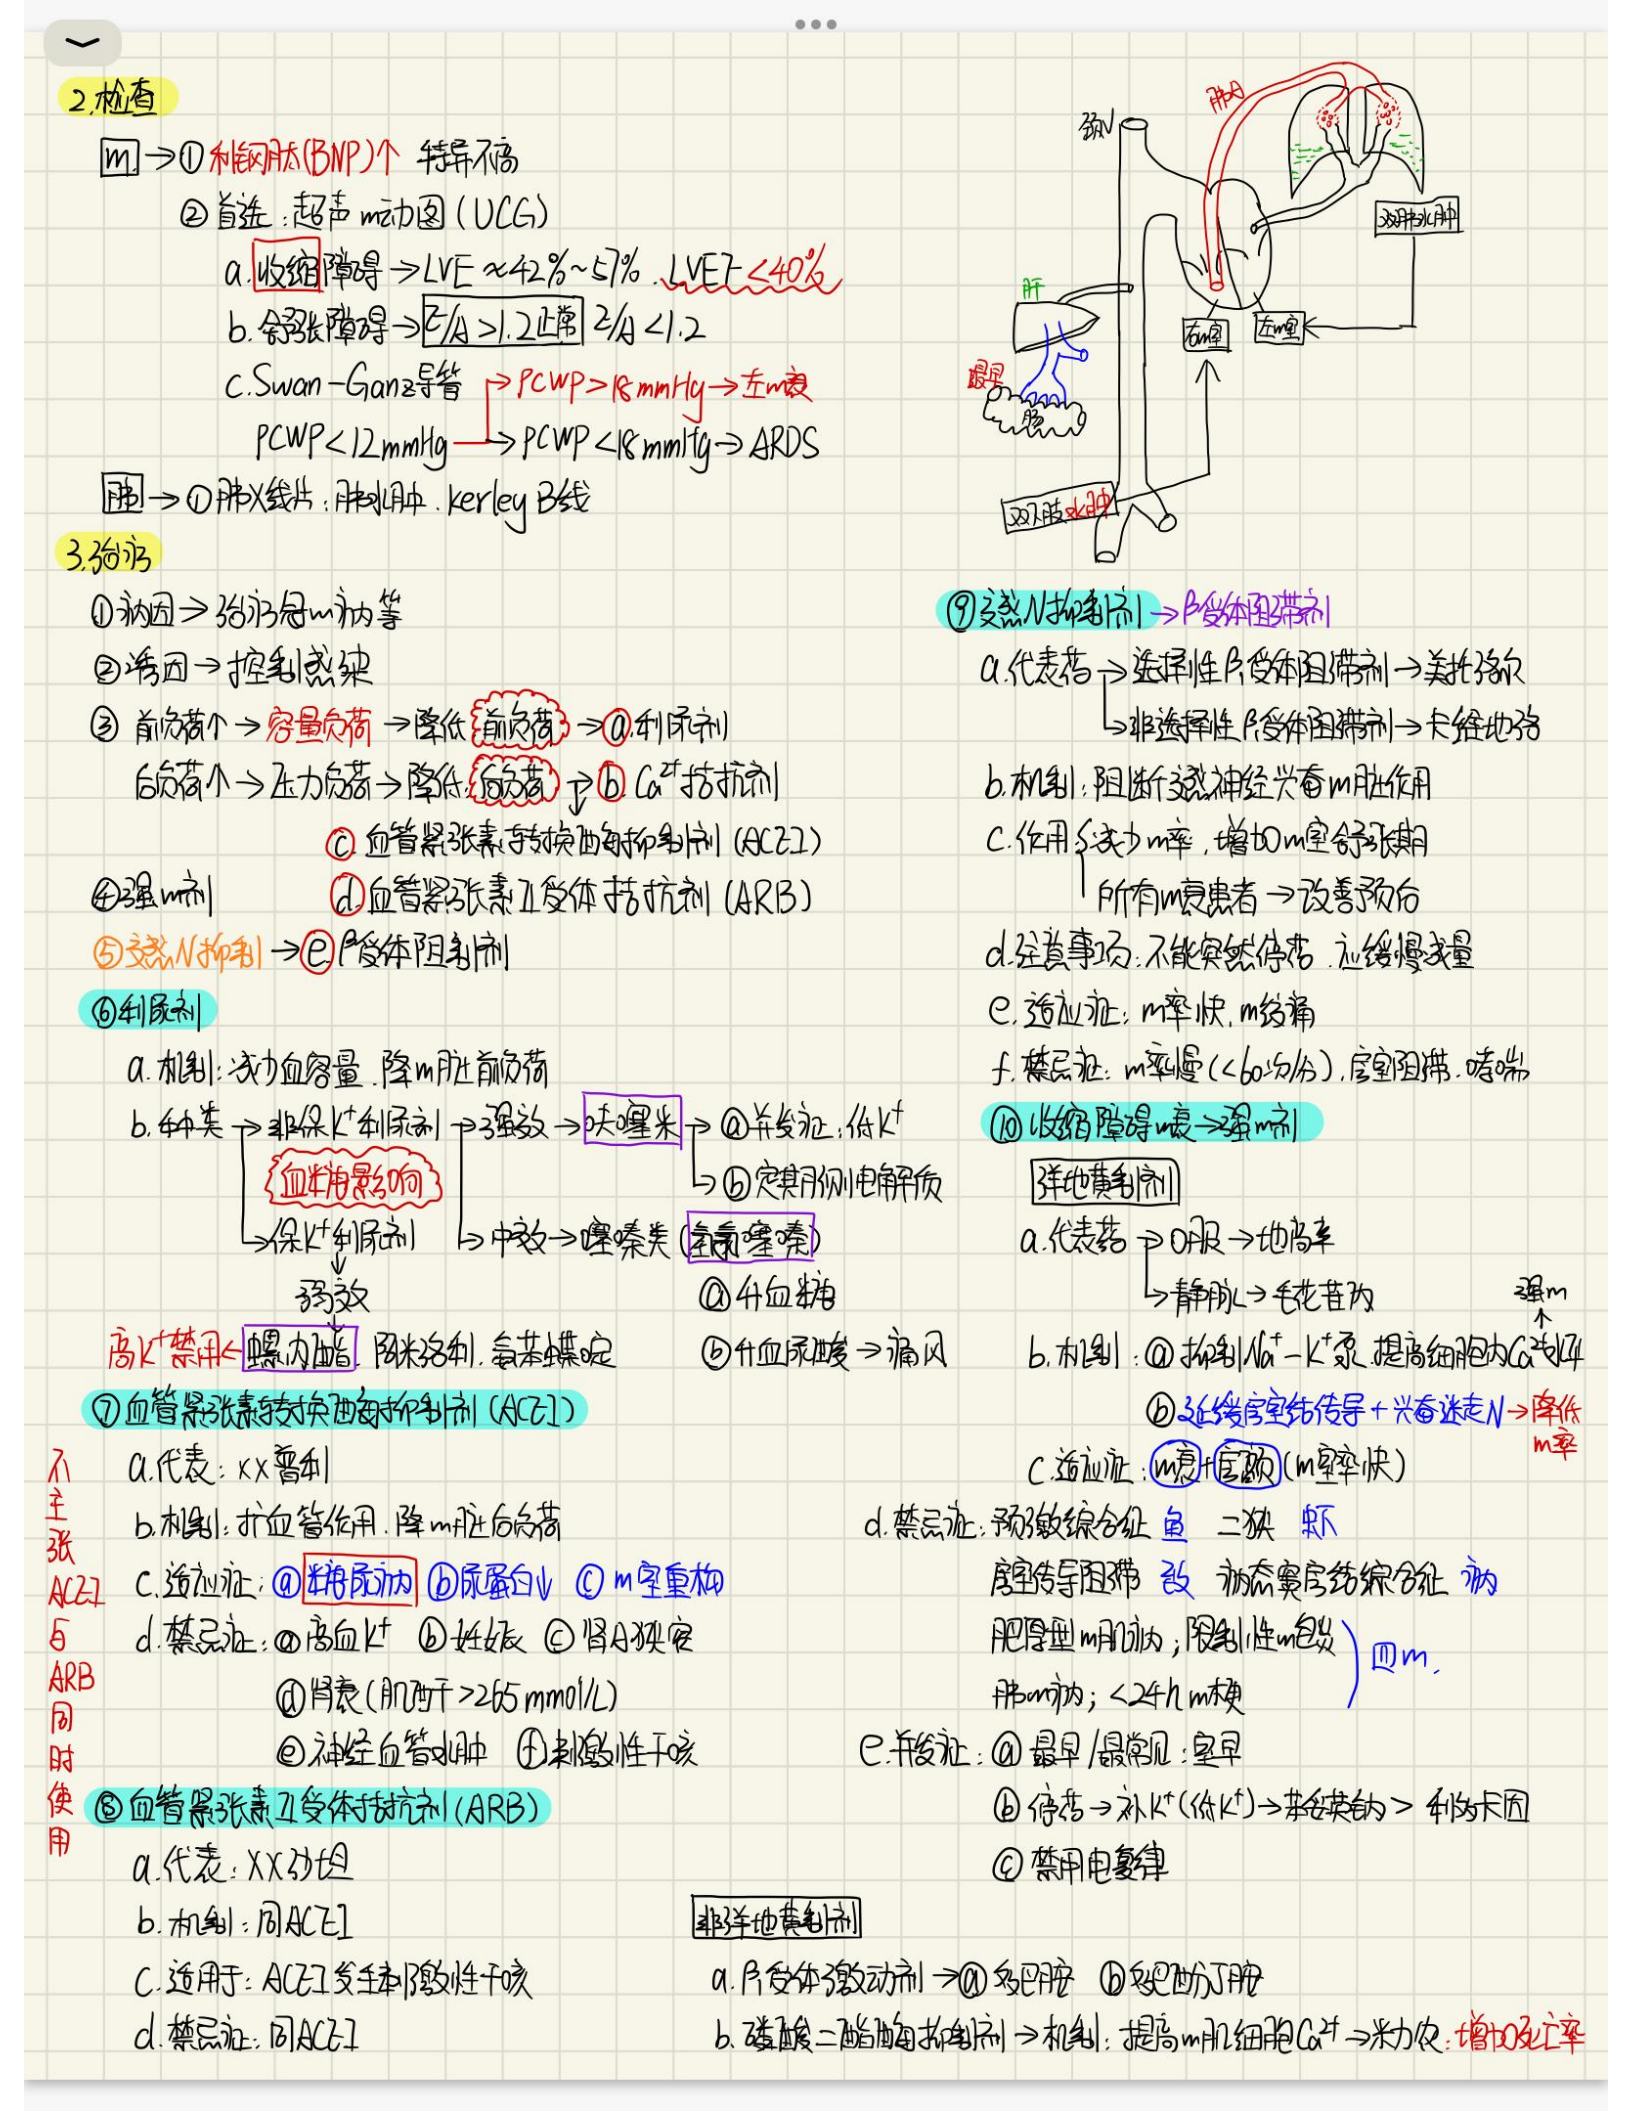 2.检查
m→①利钠肽(BNP)↑ 特异不高
②首选:超声m动图(UCG)
a.收缩障碍→LVE≈42%~57%.LVEF<40%
b.舒张障碍→E/A>1.2正常 E/A<1.2
c.Swan-Ganz导管→PCWP>18mmHg→左m衰
PCWP<12mmHg→PCWP<18mmHg→ARDS
肺→①肺X线片:肺水肿.Kerley B线
颈V
肺A
双肺水肿
肝
右m室
左m室
最早
肠
双下肢水肿
3.治疗
①病因→治疗冠m病等
②诱因→控制感染
③前负荷↑→容量负荷→降低前负荷→ⓐ利尿剂
后负荷↑→压力负荷→降低后负荷→ⓑCa²⁺拮抗剂
ⓒ血管紧张素转换酶抑制剂(ACEI)
④强m剂 ⓓ血管紧张素Ⅱ受体拮抗剂(ARB)
⑤交感N抑制→ⓔβ受体阻制剂
⑥利尿剂
a.机制:减少血容量.降m脏前负荷
b.种类→非保K⁺利尿剂→强效→呋噻米→ⓐ并发证:低K⁺
血糖影响
→ⓑ定期份测电解质
→保K⁺利尿剂 →中效→噻嗪类(氢氯噻嗪)
↓
弱效 ⓐ升血糖
高K⁺禁用←螺内酯.阿米洛利.氨苯蝶啶 ⓑ升血尿酸→痛风
⑦血管紧张素转换酶抑制剂(ACEI)
a.代表:XX普利
b.机制:扩血管作用.降m脏后负荷
c.适应证:ⓐ糖尿病 ⓑ尿蛋白↓ ⓒm室重构
d.禁忌证:ⓐ高血K⁺ ⓑ妊娠 ⓒ肾A狭窄
ⓓ肾衰(肌酐>265mmol/L)
ⓔ神经血管水肿 ⓕ刺激性干咳
不主张ACEI与ARB同时使用
⑧血管紧张素Ⅱ受体拮抗剂(ARB)
a.代表:XX沙坦
b.机制:同ACEI
c.适用于:ACEI发生刺激性干咳
d.禁忌证:同ACEI
⑨交感N抑制剂→β受体阻滞剂
a.代表药→选择性β受体阻滞剂→美托洛尔
→非选择性β受体阻滞剂→卡维地洛
b.机制:阻断交感神经兴奋m脏作用
c.作用{减少m率,增加m室舒张期
所有m衰患者→改善预后
d.注意事项:不能突然停药.应缓慢减量
e.适应证:m率快,m绞痛
f.禁忌证:m率慢(<60次/分),房室阻滞.哮喘
⑩收缩障碍m衰→强m剂
洋地黄制剂
a.代表药→口服→地高辛
→静脉→毛花苷丙
强m
↑
b.机制:ⓐ抑制Na⁺-K⁺泵.提高细胞内Ca²⁺水平
ⓑ延缓房室结传导+兴奋迷走N→降低m率
c.适应证:m衰+房颤(m室率快)
d.禁忌证:预激综合征 鱼 二狭 虾
房室传导阻滞 致 病态窦房结综合征 病
肥厚型m肌病;限制性m包炎
肺m病;<24h m梗
四m.
e.并发证:ⓐ最早/最常见:室早
ⓑ停药→补K⁺(低K⁺)→苯妥英钠>利多卡因
ⓒ禁用电复律
非洋地黄制剂
a.β受体激动剂→ⓐ多巴胺 ⓑ多巴酚丁胺
b.磷酸二酯酶抑制剂→机制:提高m肌细胞Ca²⁺→米力农:增加死亡率